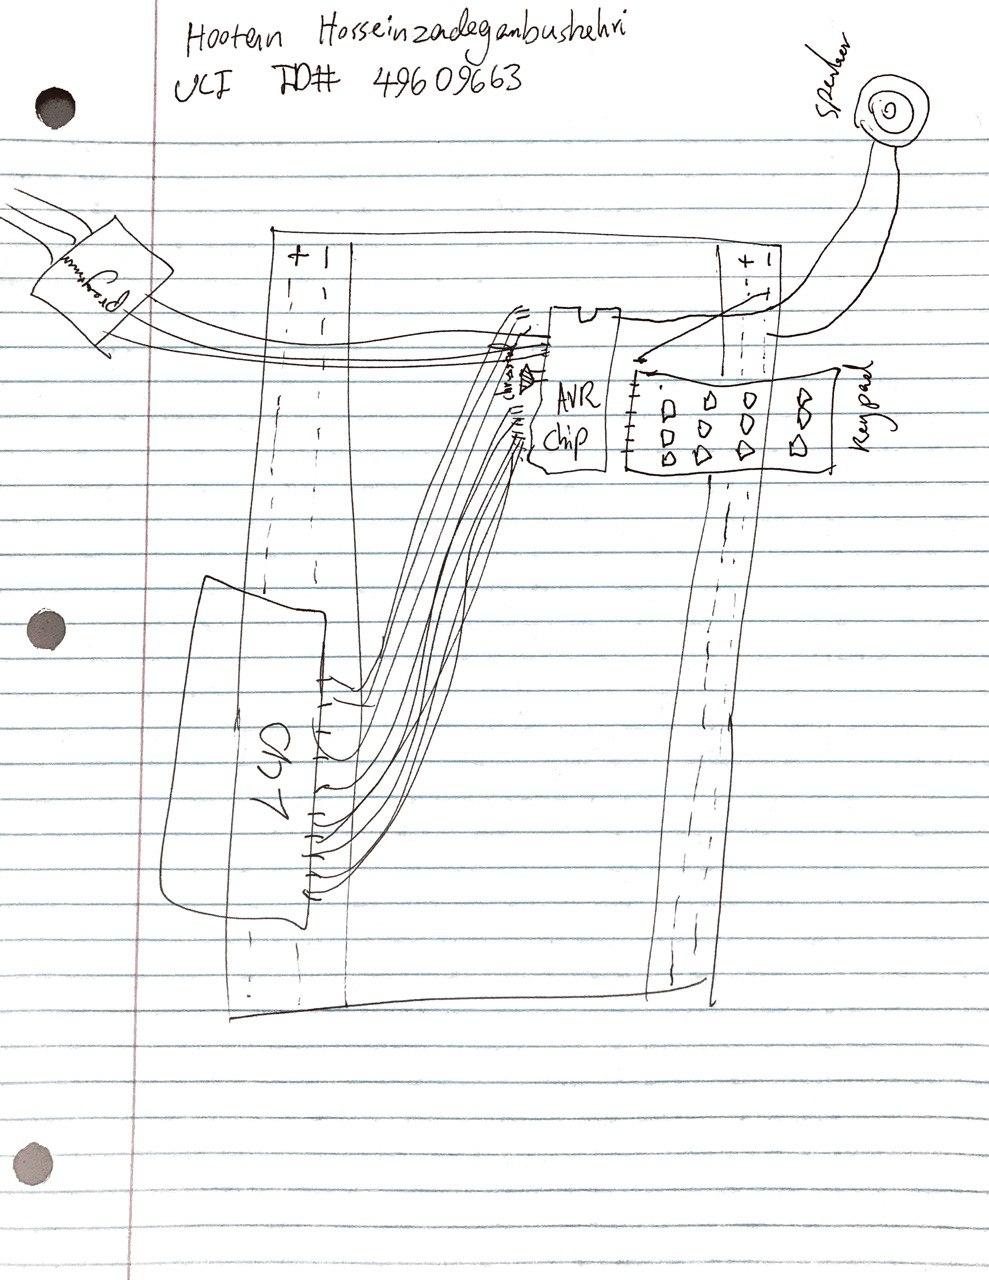 Hootan Hosseinzadeganbushehri
UCI ID# 49609663
speaker
programmer
+ -
+ -
AVR
chip
Keypad
LCD